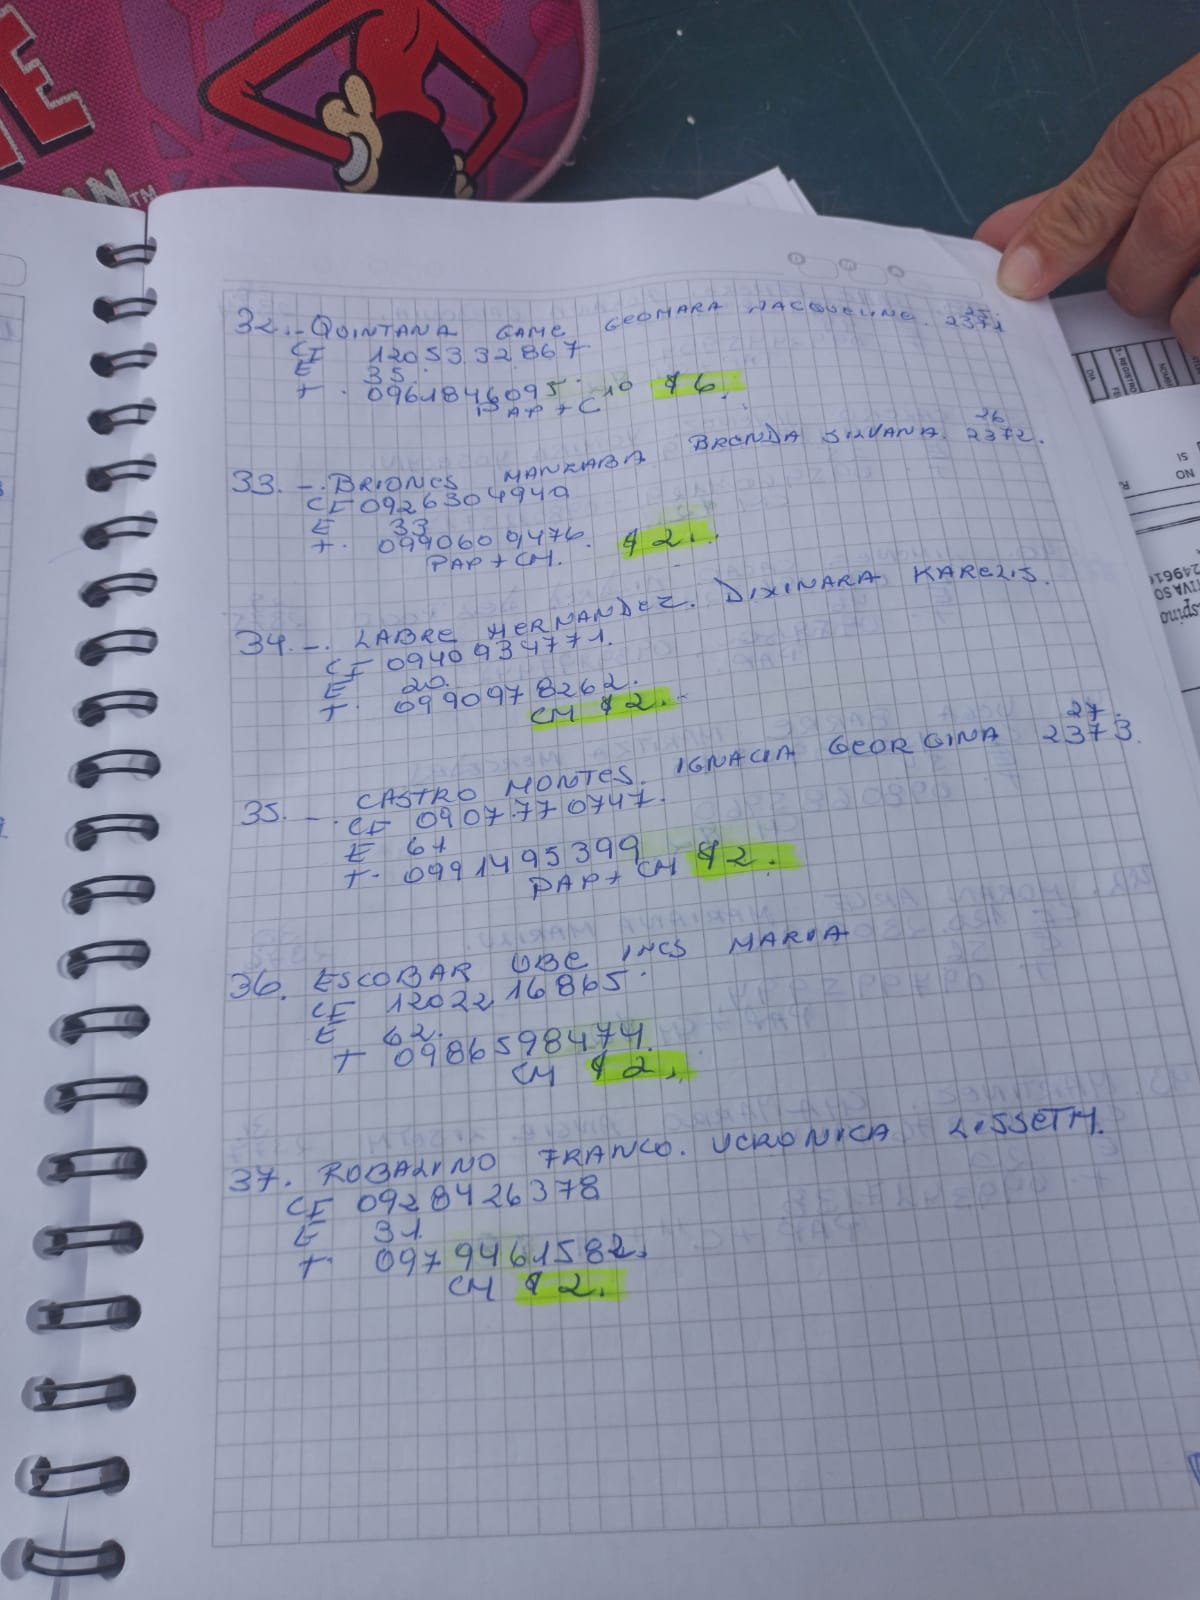 32.- QUINTANA GAME GEOMARA JACQUELINE. 2371
25.
CI 1205332867
E 35.
T. 0961846095. 10 $6.
PAP + C
33. -. BRIONES MANZABA BRENDA SILVANA. 2372.
26
CI 0926304940
E 33
T. 0940609476. $2.
PAP + CM.
34 -. LABRE HERNANDEZ. DIXINARA KARELIS.
CI 0940934771.
E 20.
T. 0990978262.
CM $2.
35. -. CASTRO MONTES. IGNACIA GEORGINA 2373.
27.
CI 0907770747.
E 61
T. 0991495399
PAP + CM $2.
36. ESCOBAR UBE INES MARIA
CI 1202216865.
E 62.
T 0986598474.
CM $2.
37. ROBALINO FRANCO. VERONICA LISSETH.
CI 0928426378
E 31.
T. 0979461582.
CM $2.
DIA
NO
SI